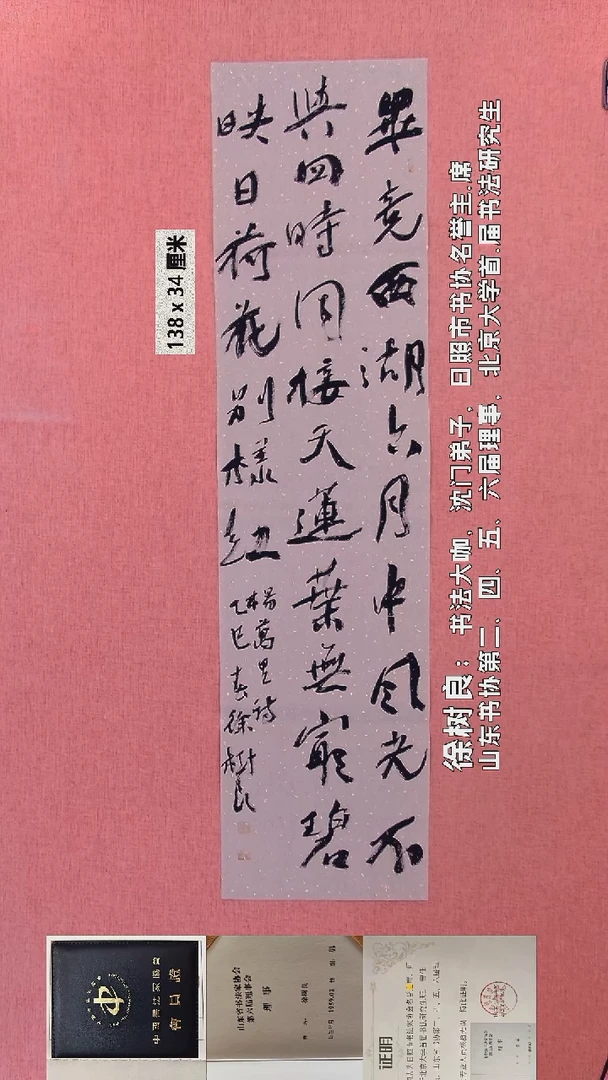 畢竟西湖六月中風光不
與四時同接天蓮葉無窮碧
映日荷花别樣紅
楊萬里詩
乙巳春徐樹良
138 x 34 厘米
徐树良：书法大咖，沈门弟子，日照市书协名誉主.席
山东书协第二、四、五、六届理事，北京大学首.届书法研究生
中國書法家協會
會員證
山东省书法家协会
第六届理事会
理事
证明